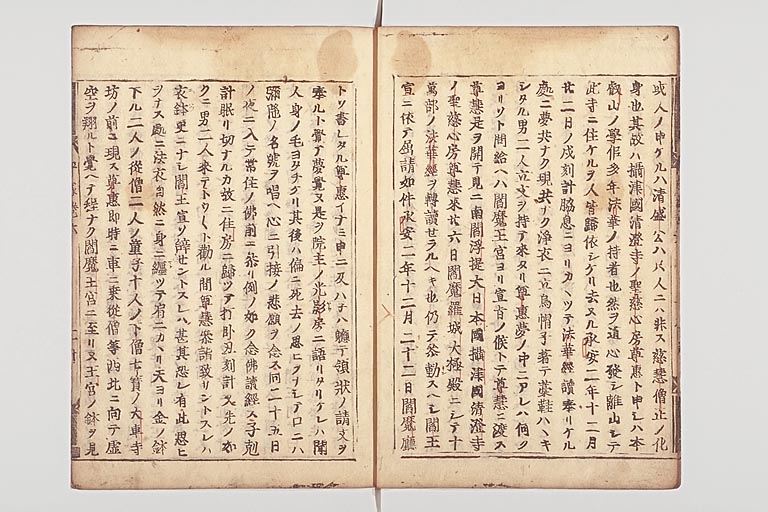 或人ノ申ケルハ清盛公ハ只人ニハ非ス慈慧僧正ノ化
身也其故ハ攝津國清澄寺ノ聖慈心房尊惠ト申シハ本
叡山ノ學侶多年法華ノ持者也然ヲ道心發シ離山シテ
此寺ニ住ケルヲ人皆歸依シケリ去ヌル承安二年十二月
廿二日ノ戌刻計脇息ニヨリカヽツテ法華經讀奉リケル
處ニ夢共ナク現共ナク淨衣ニ立烏帽子著テ藁鞋ハヽキ
シタル男二人立文ヲ持テ來タリ尊惠夢ノ中ニアレハ何クヨリ
ヨリソト問給ヘハ閻魔王宮ヨリ宣旨ノ候トテ尊惠ニ渡ス
尊慧是ヲ開テ見ニ南閻浮提大日本國攝津國清澄寺
ノ聖慈心房尊慧來廿六日閻魔羅城大極殿ニシテ十
萬部ノ法華經ヲ轉讀セラルヘキ也仍テ參勤スヘシ閻王
宣ニ依テ屈請如件承安二年十二月二十二日閻魔廳
トソ書レタル尊惠イナミ申ニ及ハネハ軈テ領狀ノ請文ヲ
奉ルト覺テ夢覺ヌ是ヲ院主ノ光影房ニ語リタリケレハ聞
人身ノ毛ヨタチケリ其後ハ偏ニ死去ノ思ヒヲナシテ口ニハ
彌陀ノ名號ヲ唱ヘ心ニ引接ノ悲願ヲ念ス同二十五日
ノ夜ニ入テ常住ノ佛前ニ參リ例ノ如ク念佛讀經ス子刻
計眠リ切ナルカ故ニ住房ニ歸ツテ打卧丑刻計又先ノ如
クニ男二人來テトクトクト勸ル間尊慧參詣致サントスレハ
衣鉢更ニナシ閻王宣ヲ辭セントスレハ甚其恐レ有此思ヒ
ヲナス處ニ法衣自然ニ身ニ纏ツテ肩ニカヽリ天ヨリ金ノ鉢
下ル二人ノ從僧二人ノ童子十人ノ下僧七寶ノ大車寺
坊ノ前ニ現ス尊惠即時ニ車ニ乘從僧等西北ニ向テ虛
空ヲ翔ルト覺ヘテ程ナク閻魔王宮ニ至リヌ王宮ノ躰ヲ見